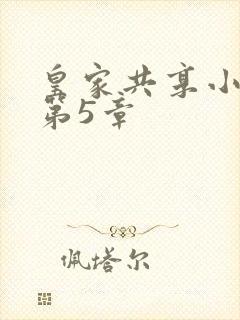 皇家共享小
第5章
佩塔尔